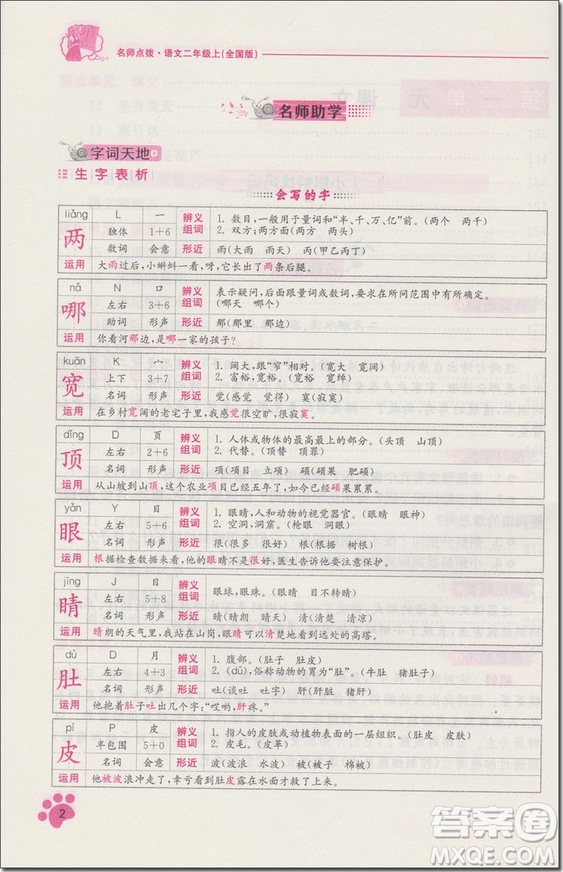 名师点拨·语文二年级上(全国版)
名师助学
字词天地
生字表析
会写的字
liǎng L 一 辨义组词 1. 数目,一般用于量词和“半、千、万、亿”前。(两个 两千)
两 独体 1+6 2. 双方;两方面(两方面 两岸)
数词 会意 形近 雨(大雨 雨天) 丙(甲乙丙丁)
运用 大雨过后,小蝌蚪一看,呀,它长出了两条后腿。
nǎ N 口 辨义组词 表示疑问,后面跟量词或数词,要求在所问范围中有所确定。
哪 左右 3+6 (哪天 哪个)
助词 形声 形近 那(那里 那边)
运用 你看河那边,是哪一家的孩子?
kuān K 宀 辨义组词 1. 阔大,跟“窄”相对。(宽大 宽阔)
宽 上下 3+7 2. 富裕,宽裕。(宽裕 宽绰)
名词 形声 形近 觉(感觉 觉得) 寞(寂寞)
运用 在乡村宽阔的老宅子里,我感觉很空旷,很寂寞。
dǐng D 页 辨义组词 1. 人体或物体的最高最上的部分。(头顶 山顶)
顶 左右 2+6 2. 代替。(顶替 顶罪)
名词 形声 形近 项(项目 立项) 硕(硕果 肥硕)
运用 从山坡到山顶,这个农业项目已经五年了,如今已硕果累累。
yǎn Y 目 辨义组词 1. 眼睛,人和动物的视觉器官。(眼睛 眼神)
眼 左右 5+6 2. 空洞,洞窟。(打眼 洞眼)
名词 形声 形近 很(很多 很好) 根(根据 树根)
运用 根据检查数据,他的眼睛不是很好,医生告诉他要注意保护。
jīng J 目 辨义组词 眼球,眼珠。(眼睛 目不转睛)
睛 左右 5+8
名词 形声 形近 晴(晴朗 晴天) 清(清楚 清凉)
运用 晴朗的天气里,我站在山岗,眼睛可以清楚地看到远处的高塔。
dù D 月 辨义组词 1. 腹部。(肚子 肚皮)
肚 左右 4+3 2. (dǔ),俗称动物的胃为“肚”。(牛肚 猪肚子)
名词 形声 形近 吐(谈吐 吐字) 肝(肝脏 猪肝)
运用 他抱着肚子吐出几个字:“哎哟,肝疼。”
pí P 皮 辨义组词 1. 指人的皮肤或动植物表面的一层组织。(肚皮 皮肤)
皮 半包围 5+0 2. 皮毛。(皮革)
名词 会意 形近 波(水波 波浪) 被(被子 棉被)
运用 他被波浪冲走了,幸亏看到肚皮露在水面才找到了他。
2
答案圈
MXQE.COM